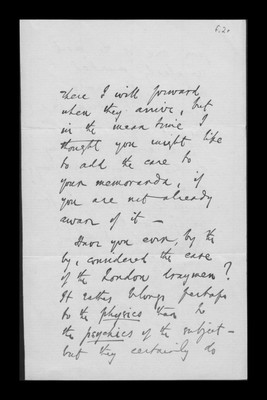 there I will forward
when they arrive, but
in the mean time I
thought you might like
to add the case to
your memoranda, if
you are not already
aware of it —
Have you ever, by the
by, considered the case
of the London draymen?
It rather belongs perhaps
to the physics than to
the psychics of the subject —
but they certainly do